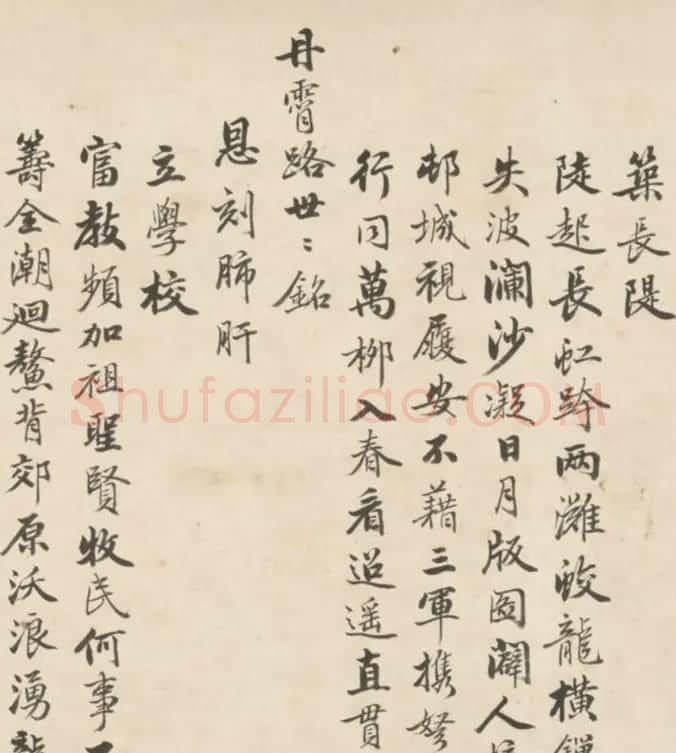 築長隄
陡起長虹跨两灘蛟龍橫
失波澜沙凝日月版圖闢人
邨城視履安不藉三軍携
行同萬栁入春看迢遥直貫
丹霄路世〻銘
恩刻肺肝
立學校
富教頻加祖聖賢牧民何事
籌全潮迴鰲背郊原沃浪湧
Shufaziliao.COM